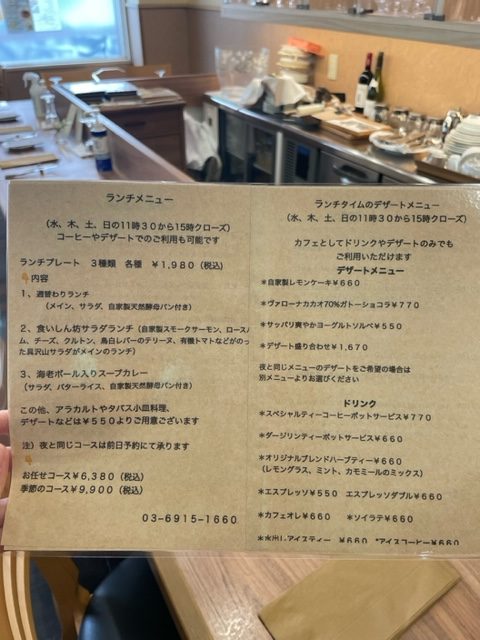 ランチメニュー
（水、木、土、日の11時30から15時クローズ）
コーヒーやデザートでのご利用も可能です
ランチプレート　3種類　各種　￥1,980（税込）
👇内容
1、週替わりランチ
（メイン、サラダ、自家製天然酵母パン付き）
2、食いしん坊サラダランチ（自家製スモークサーモン、ロースハ
ム、チーズ、クルトン、鳥白レバーのテリーヌ、有機トマトなどがのっ
た具沢山サラダがメインのランチ）
3、海老ボール入りスープカレー
（サラダ、バターライス、自家製天然酵母パン付き）
この他、アラカルトやタパス小皿料理、
デザートなどは￥550よりご用意ございます
注）夜と同じコースは前日予約にて承ります
👇
お任せコース￥6,380（税込）
季節のコース￥9,900（税込）
03-6915-1660
ランチタイムのデザートメニュー
（水、木、土、日の11時30から15時クローズ）
カフェとしてドリンクやデザートのみでも
ご利用いただけます
デザートメニュー
*自家製レモンケーキ￥660
*ヴァローナカカオ70%ガトーショコラ￥770
*サッパリ爽やかヨーグルトソルベ￥550
*デザート盛り合わせ￥1,670
夜と同じメニューのデザートをご希望の場合は
別メニューよりお選びください
ドリンク
*スペシャルティーコーヒーポットサービス￥770
*ダージリンティーポットサービス￥660
*オリジナルブレンドハーブティー￥660
（レモングラス、ミント、カモミールのミックス）
*エスプレッソ￥550　エスプレッソダブル￥660
*カフェオレ￥660　*ソイラテ￥660
*水出しアイスティー　￥660　*アイスコーヒー￥660